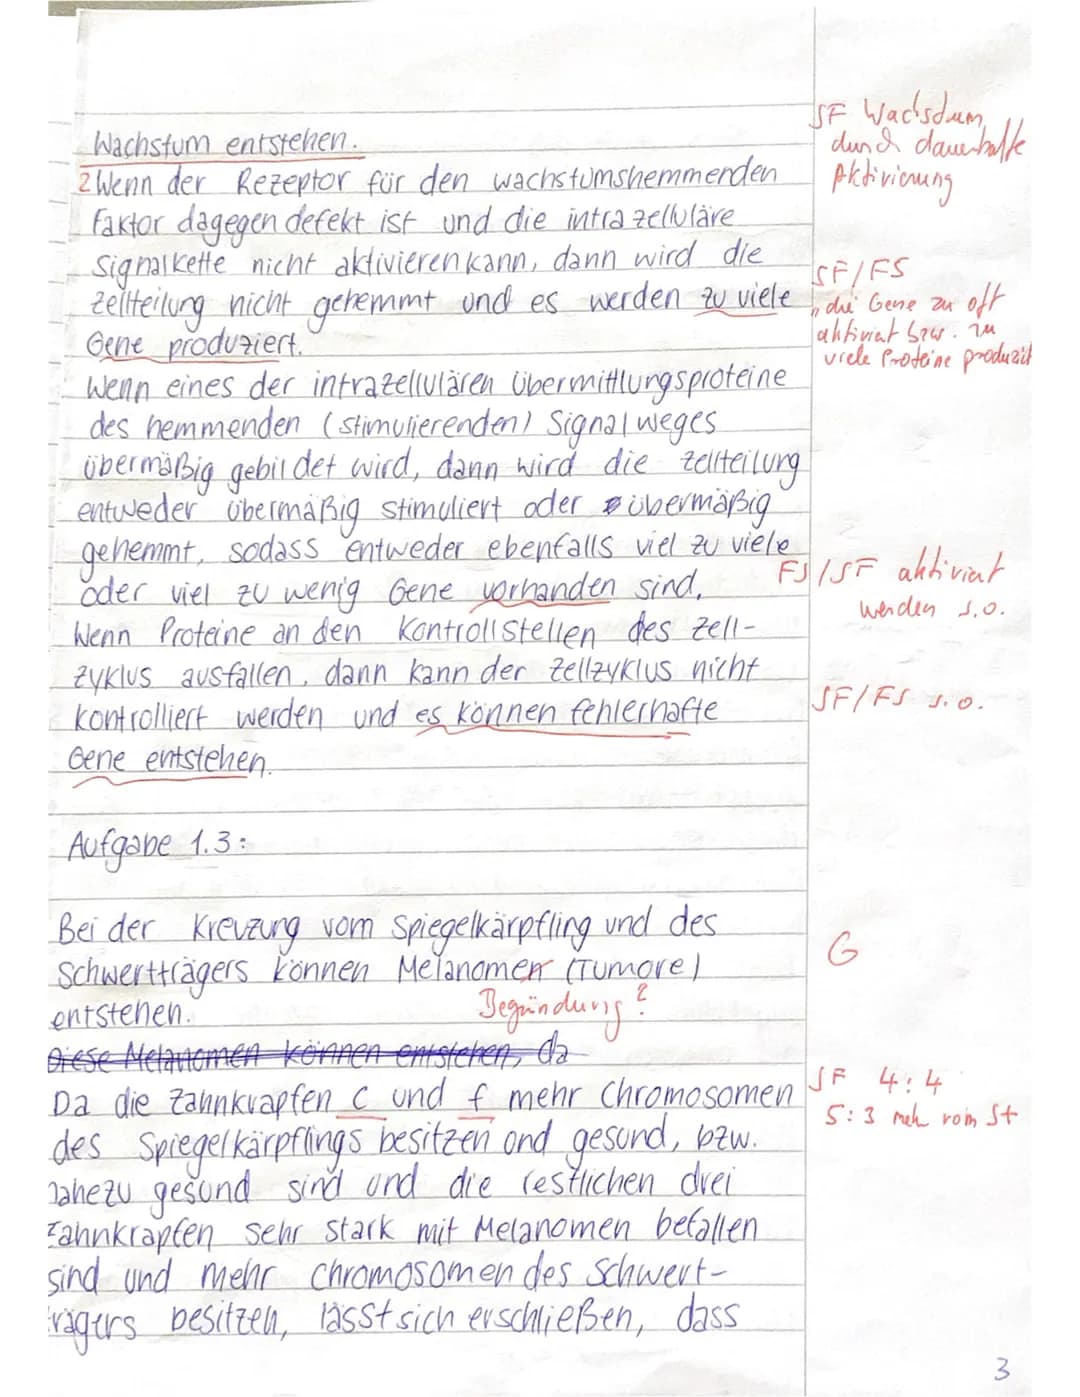 Wachstum entstehen.
SF Wachsdum
durch dauerhafte
Aktivierung
2 Wenn der Rezeptor für den wachstumshemmenden
Faktor dagegen defekt ist und die intrazelluläre
Signalkette nicht aktivieren kann, dann wird die
Zellteilung nicht gehemmt und es werden zu viele
Gene produziert.
SF/FS
die Gene zu oft
aktiviert bzw. zu
viele Proteine produziert
Wenn eines der intrazellulären Übermittlungsproteine
des hemmenden (stimulierenden) Signalweges
übermäßig gebildet wird, dann wird die Zellteilung
entweder übermäßig stimuliert oder übermäßig
gehemmt, sodass entweder ebenfalls viel zu viele
oder viel zu wenig Gene vorhanden sind.
FS/SF aktiviert
werden s.o.
Wenn Proteine an den Kontrollstellen des Zell-
zyklus ausfallen, dann kann der Zellzyklus nicht
kontrolliert werden und es können fehlerhafte
Gene entstehen.
SF/FS s.o.
Aufgabe 1.3:
Bei der Kreuzung vom Spiegelkärpfling und des
Schwertträgers können Melanomen (Tumore)
entstehen.
G
Begründung?
Diese Melanomen können entstehen, da
Da die Zahnkrapfen C und f mehr Chromosomen
des Spiegelkärpflings besitzen ond gesund, bzw.
nahezu gesund sind und die restlichen drei
Zahnkrapfen sehr stark mit Melanomen befallen
sind und mehr Chromosomen des Schwert-
trägers besitzen, lässt sich erschließen, dass
SF 4:4
5:3 mehr vom St
3